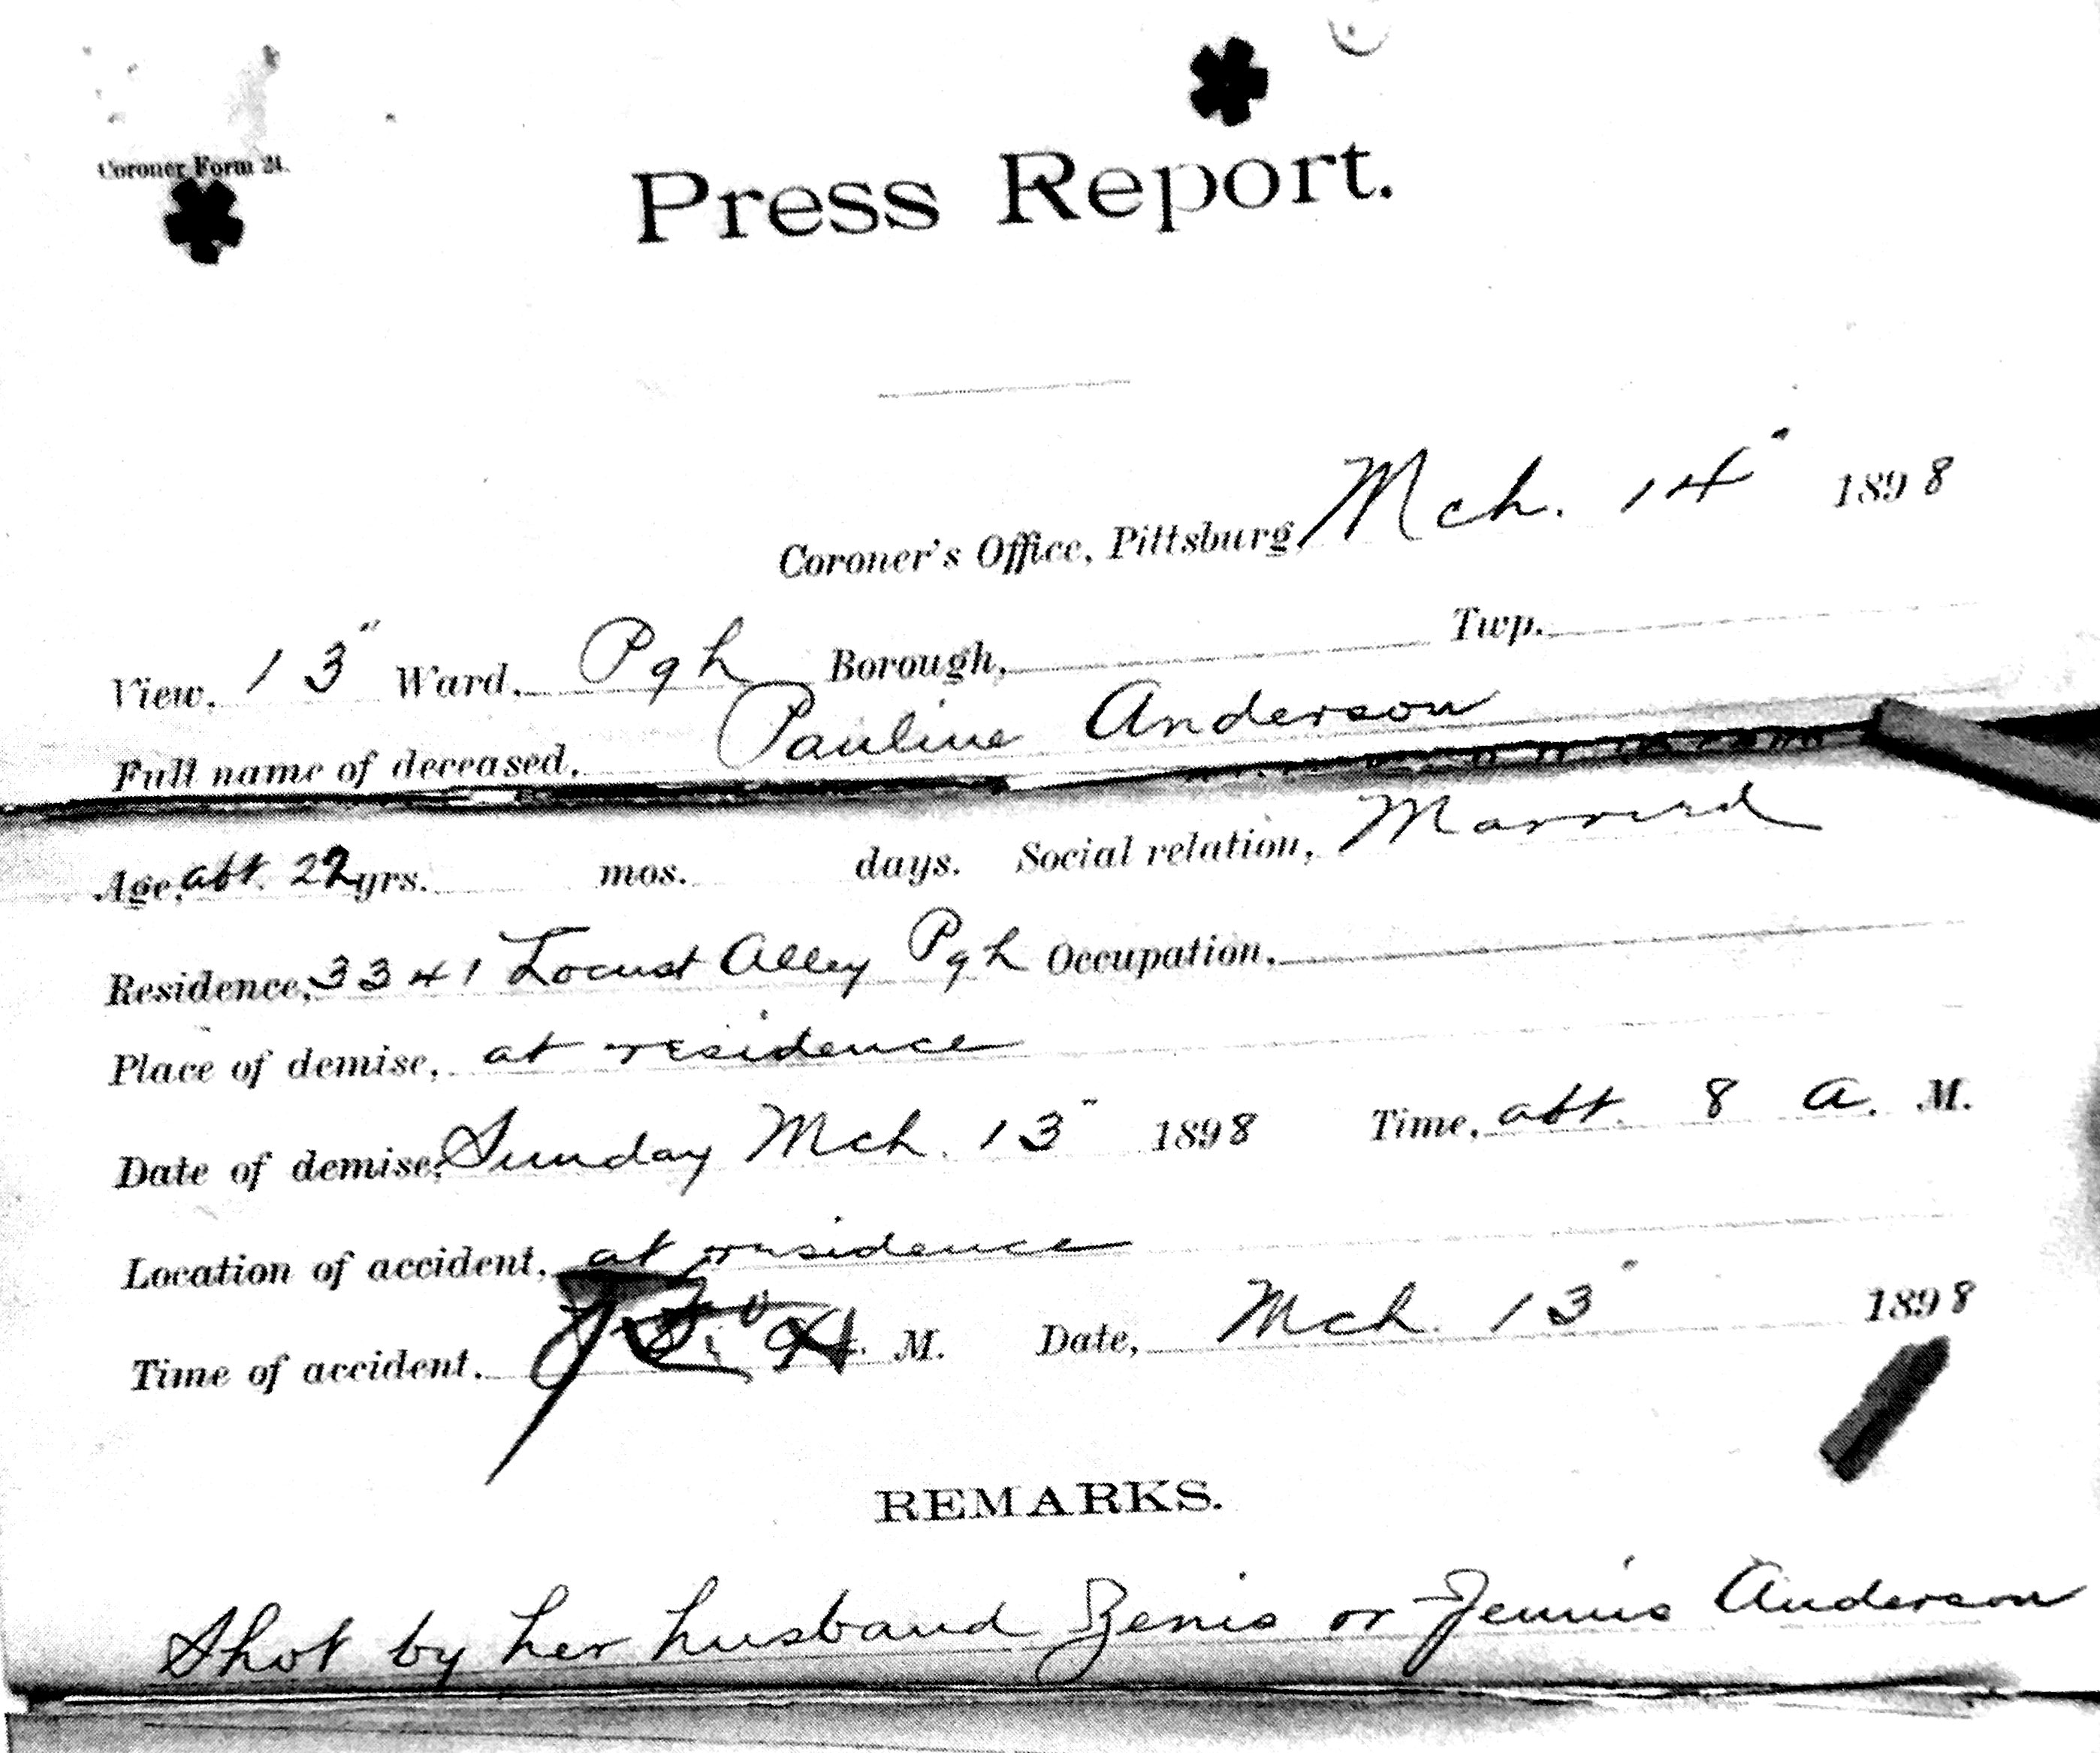 Coroner Form 21.
Press Report.
Coroner's Office, Pittsburg, Mch. 14" 1898
View, 13" Ward, Pgh Borough, Twp.
Full name of deceased, Pauline Anderson
Age, abt. 22 yrs. mos. days. Social relation, Married
Residence, 3341 Locust Alley Pgh Occupation,
Place of demise, at residence
Date of demise, Sunday Mch. 13" 1898 Time, abt. 8 A. M.
Location of accident, at residence
Time of accident. M. Date, Mch. 13" 1898
REMARKS.
Shot by her husband Zenis or Jennis Anderson